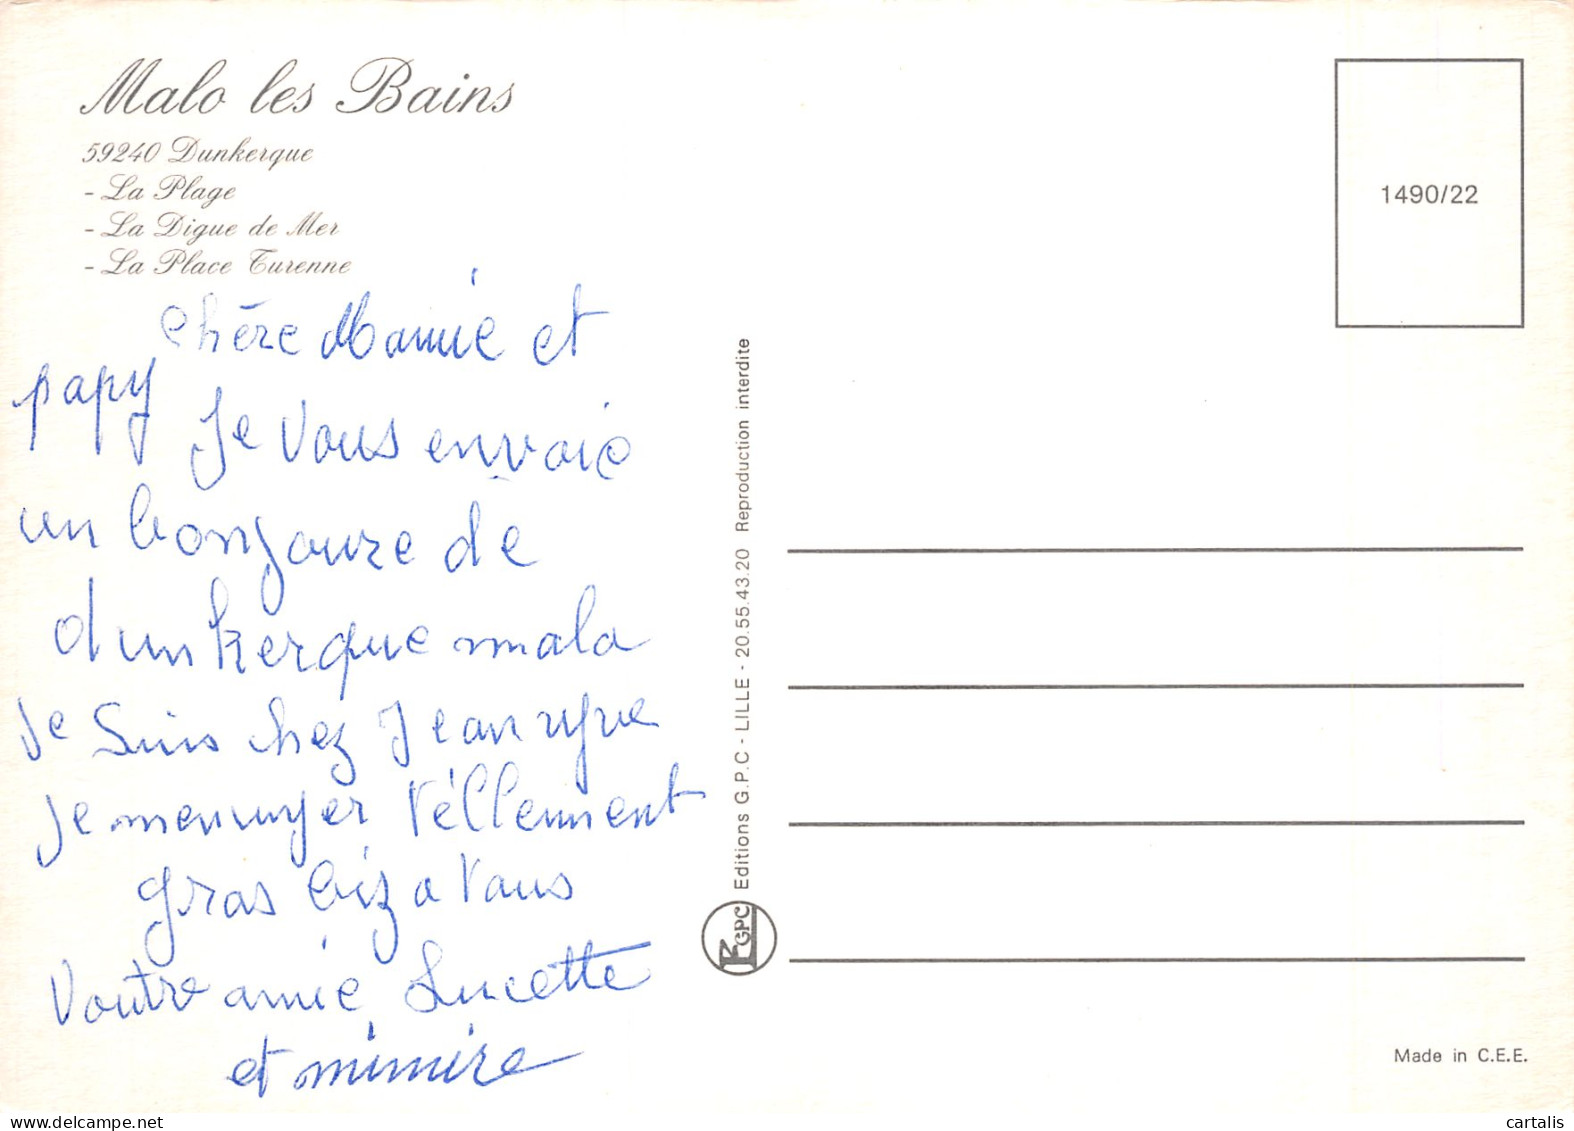 Malo les Bains
59240 Dunkerque
- La Plage
- La Digue de Mer
- La Place Turenne
chère Mamie et
papy Je Vous envoie
un bonjoure de
dunkerque malo
Je Suis chez Jean
Je menuyer téllement
gras biz a Vous
Voutre amie Lucette
et mimire
Editions G.P.C - LILLE - 20.55.43.20 Reproduction interdite
GPC
1490/22
Made in C.E.E.
cartalis